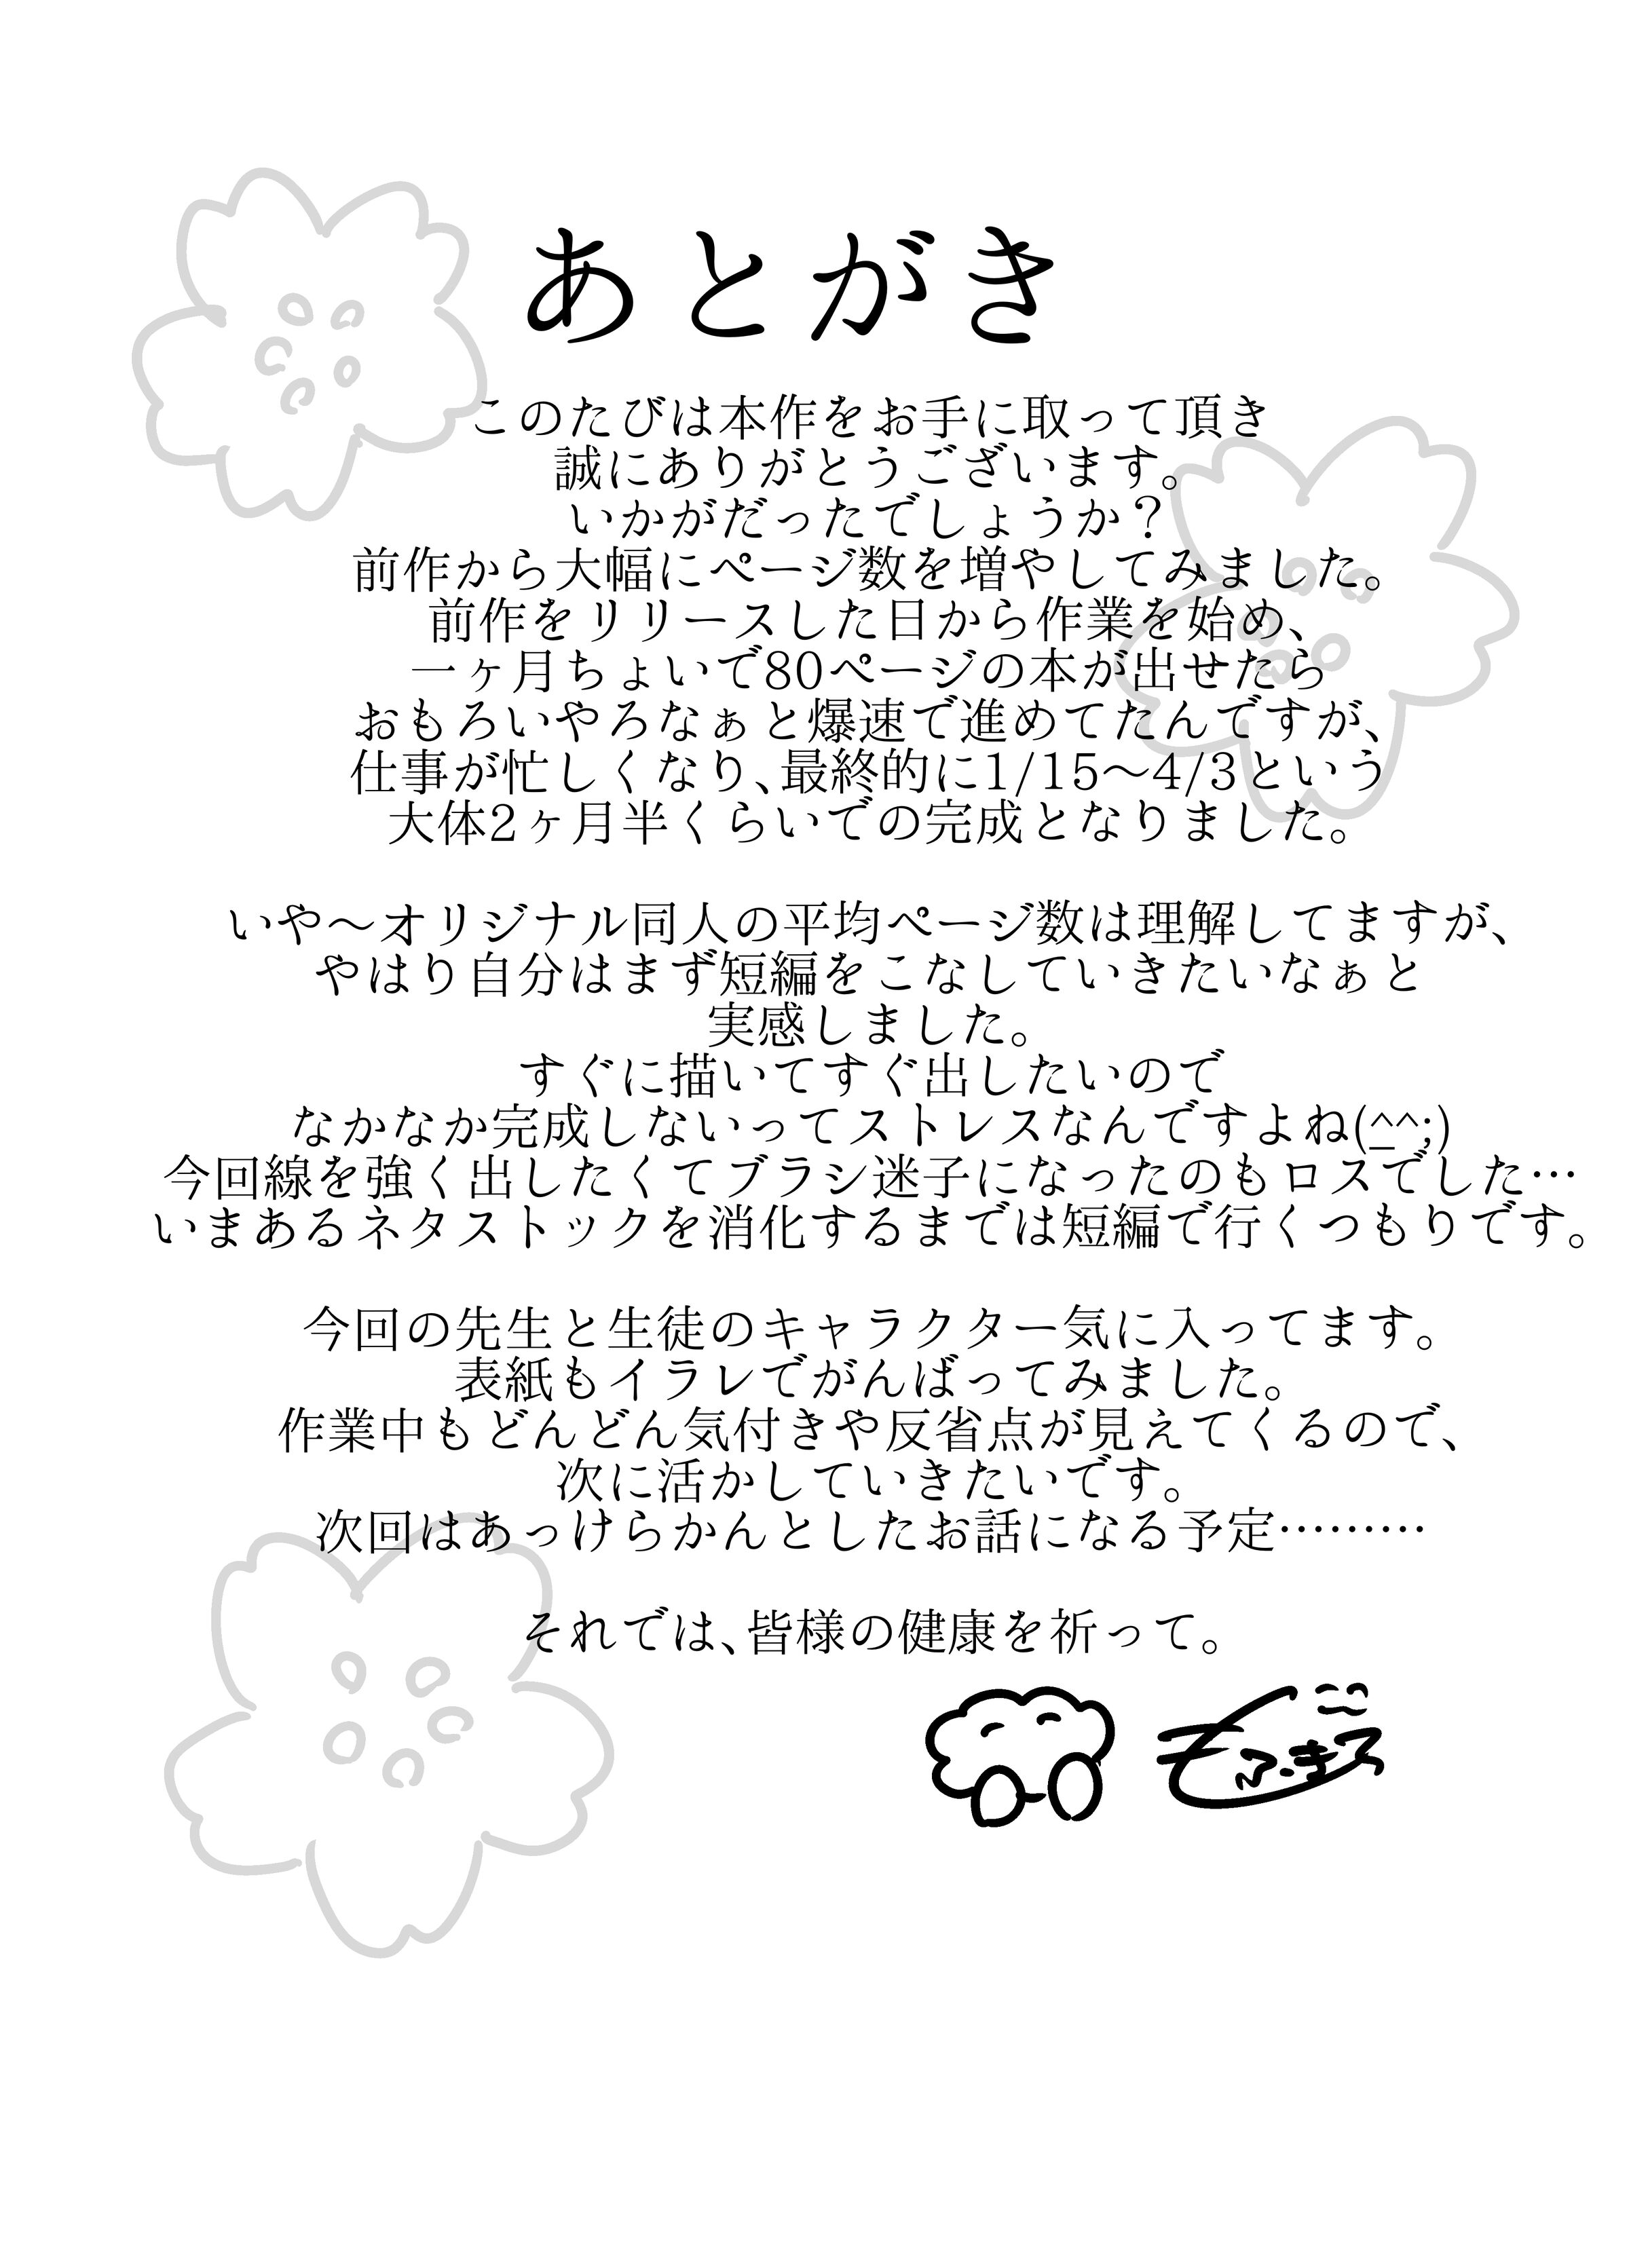 あとがき
このたびは本作をお手に取って頂き
誠にありがとうございます。
いかがだったでしょうか？
前作から大幅にページ数を増やしてみました。
前作をリリースした日から作業を始め、
一ヶ月ちょいで80ページの本が出せたら
おもろいやろなぁと爆速で進めてたんですが、
仕事が忙しくなり、最終的に1/15〜4/3という
大体2ヶ月半くらいでの完成となりました。
いや〜オリジナル同人の平均ページ数は理解してますが、
やはり自分はまず短編をこなしていきたいなぁと
実感しました。
すぐに描いてすぐ出したいので
なかなか完成しないってストレスなんですよね(^_^;)
今回線を強く出したくてブラシ迷子になったのもロスでした…
いまあるネタストックを消化するまでは短編で行くつもりです。
今回の先生と生徒のキャラクター気に入ってます。
表紙もイラレでがんばってみました。
作業中もどんどん気付きや反省点が見えてくるので、
次に活かしていきたいです。
次回はあっけらかんとしたお話になる予定………
それでは、皆様の健康を祈って。